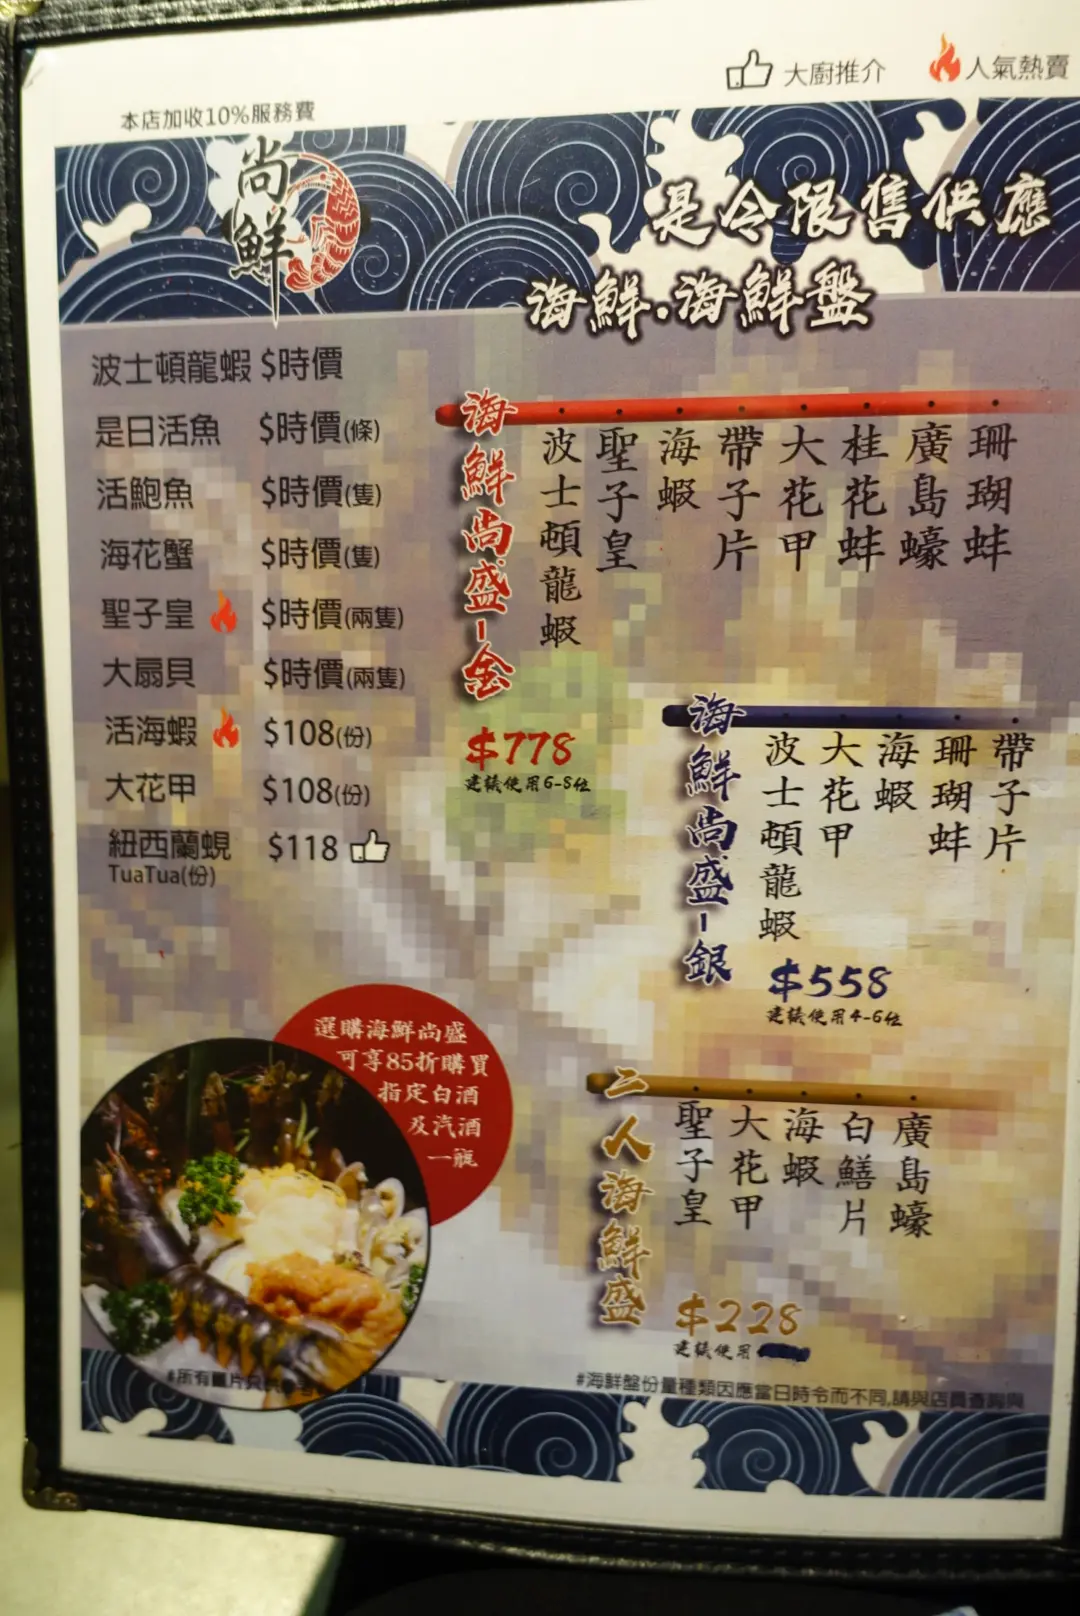 大廚推介
人氣熱賣
本店加收10%服務費
尚鮮
是令限售供應
海鮮.海鮮盤
波士頓龍蝦 $時價
是日活魚 $時價(條)
活鮑魚 $時價(隻)
海花蟹 $時價(隻)
聖子皇 $時價(兩隻)
大扇貝 $時價(兩隻)
活海蝦 $108(份)
大花甲 $108(份)
紐西蘭蜆 $118
TuaTua(份)
海鮮尚盛-金
波士頓龍蝦
聖子皇
海蝦
帶子片
大花甲
桂花蚌
廣島蠔
珊瑚蚌
$778
建議使用6-8位
海鮮尚盛-銀
波士頓龍蝦
大花甲
海蝦
珊瑚蚌
帶子片
$558
建議使用4-6位
二人海鮮盛
聖子皇
大花甲
海蝦
白鱔片
廣島蠔
$228
建議使用
選購海鮮尚盛
可享85折購買
指定白酒
及汽酒
一瓶
#所有圖片只供
#海鮮盤份量種類因應當日時令而不同,請與店員查詢